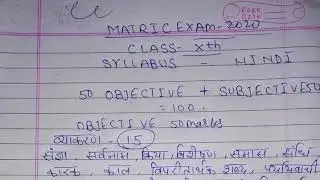 MATRIC EXAM-2020
CLASS- Xth
SYLLABUS - HINDI
50 OBJECTIVE + SUBJECTIVE 50
= 100.
OBJECTIVE 50 marks
व्याकरण - 15
संज्ञा, सर्वनाम, क्रिया, विशेषण, समास, संधि
कारक, काल, विपरीतार्थक शब्द, पर्यायवाची